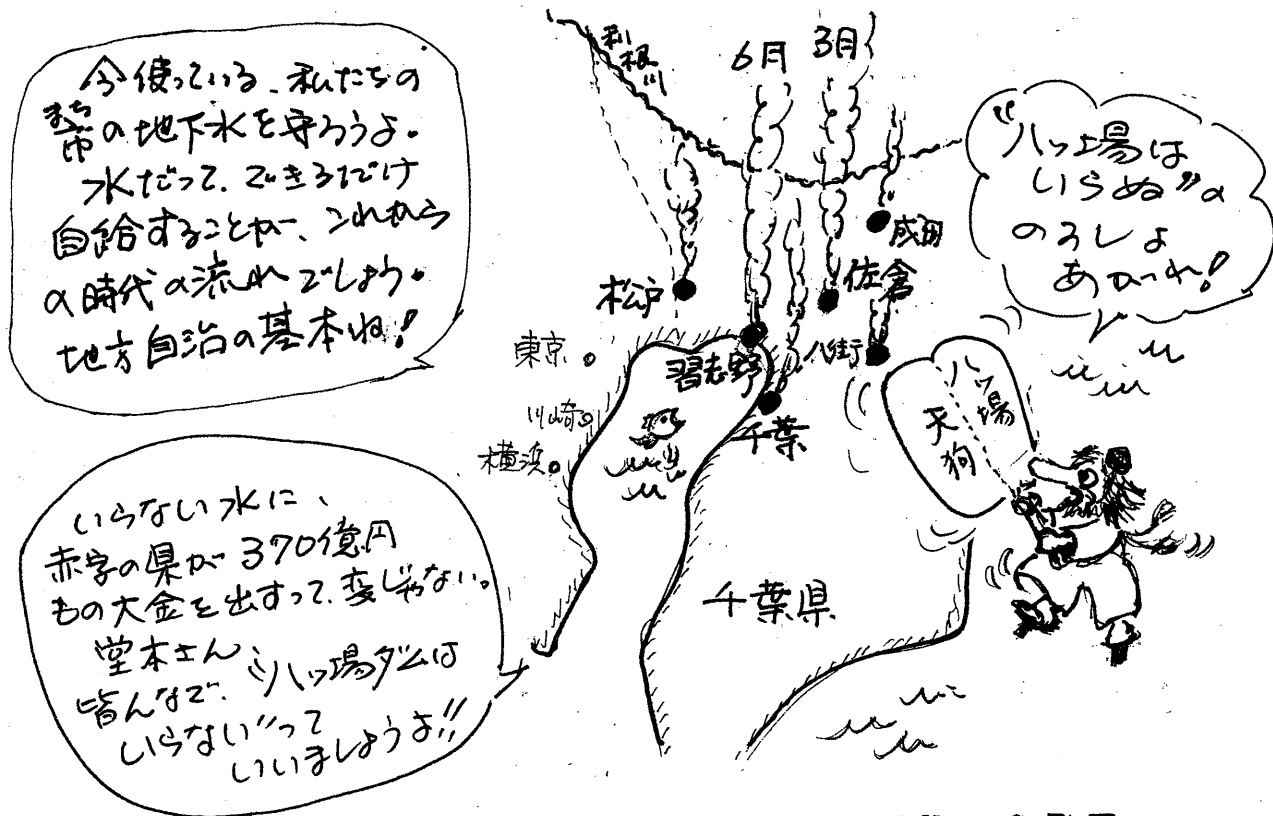 今使っている、私たちの
まち
市の地下水を守ろうよ。
水だって、できるだけ
自給することが、これから
の時代の流れでしょう。
地方自治の基本ね!
いらない水に、
赤字の県が370億円
もの大金を出すって、変じゃない。
堂本さん、
皆んなで、〝八ッ場ダムは
いらない〟って
いいましょうよ!!
利根川
6月
3月
成田
佐倉
松戸
八街
習志野
千葉
東京
川崎
横浜
千葉県
〝八ッ場は
いらぬ〟の
のろしよ
あがれ!
八ッ場
天狗